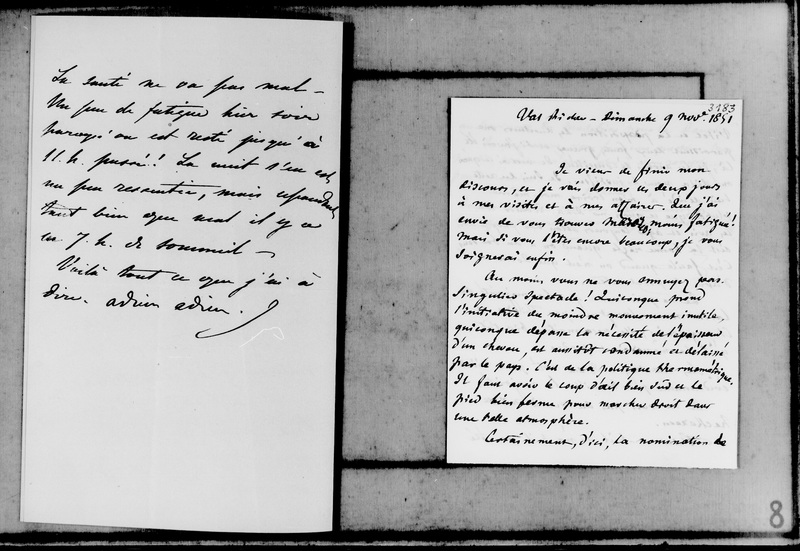 La santé ne va pas mal -
Un peu de fatigue hier soir
parcequ'on est resté jusqu'à
11. h. passé! La nuit s'en est
un peu ressentie, mais cependant
tant bien que mal il y a
eu 7 h. de sommeil -
Voilà tout ce que j'ai à
dire. adieu adieu.
3183
Val Richer - Dimanche 9 Nov. 1851
Je viens de finir mon
discours, et je vais donner ces deux jours
à mes visites et à mes affaires. Que j'ai
envie de vous trouver Mardi moins fatiguée!
Mais si vous l'êtes encore beaucoup, je vous
soignerai enfin.
Au moins, vous ne vous ennuyez pas.
Singulier spectacle! Quiconque prend
l'initiative du moindre mouvement inutile,
quiconque dépasse la nécessité de l'épaisseur
d'un cheveu, est aussitôt condamné et délaissé
par le pays. C'est de la politique thermométrique.
Il faut avoir le coup d'œil bien sûr et le
pied bien ferme pour marcher droit dans
une telle atmosphère.
Certainement, d'ici, la nomination de
8